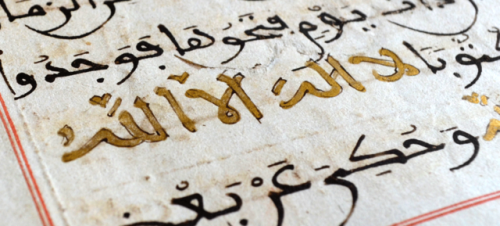 الزما
يوم فتحوها فوجدوا
مكتوبا لا اله الا الله
وحكي عن بعض